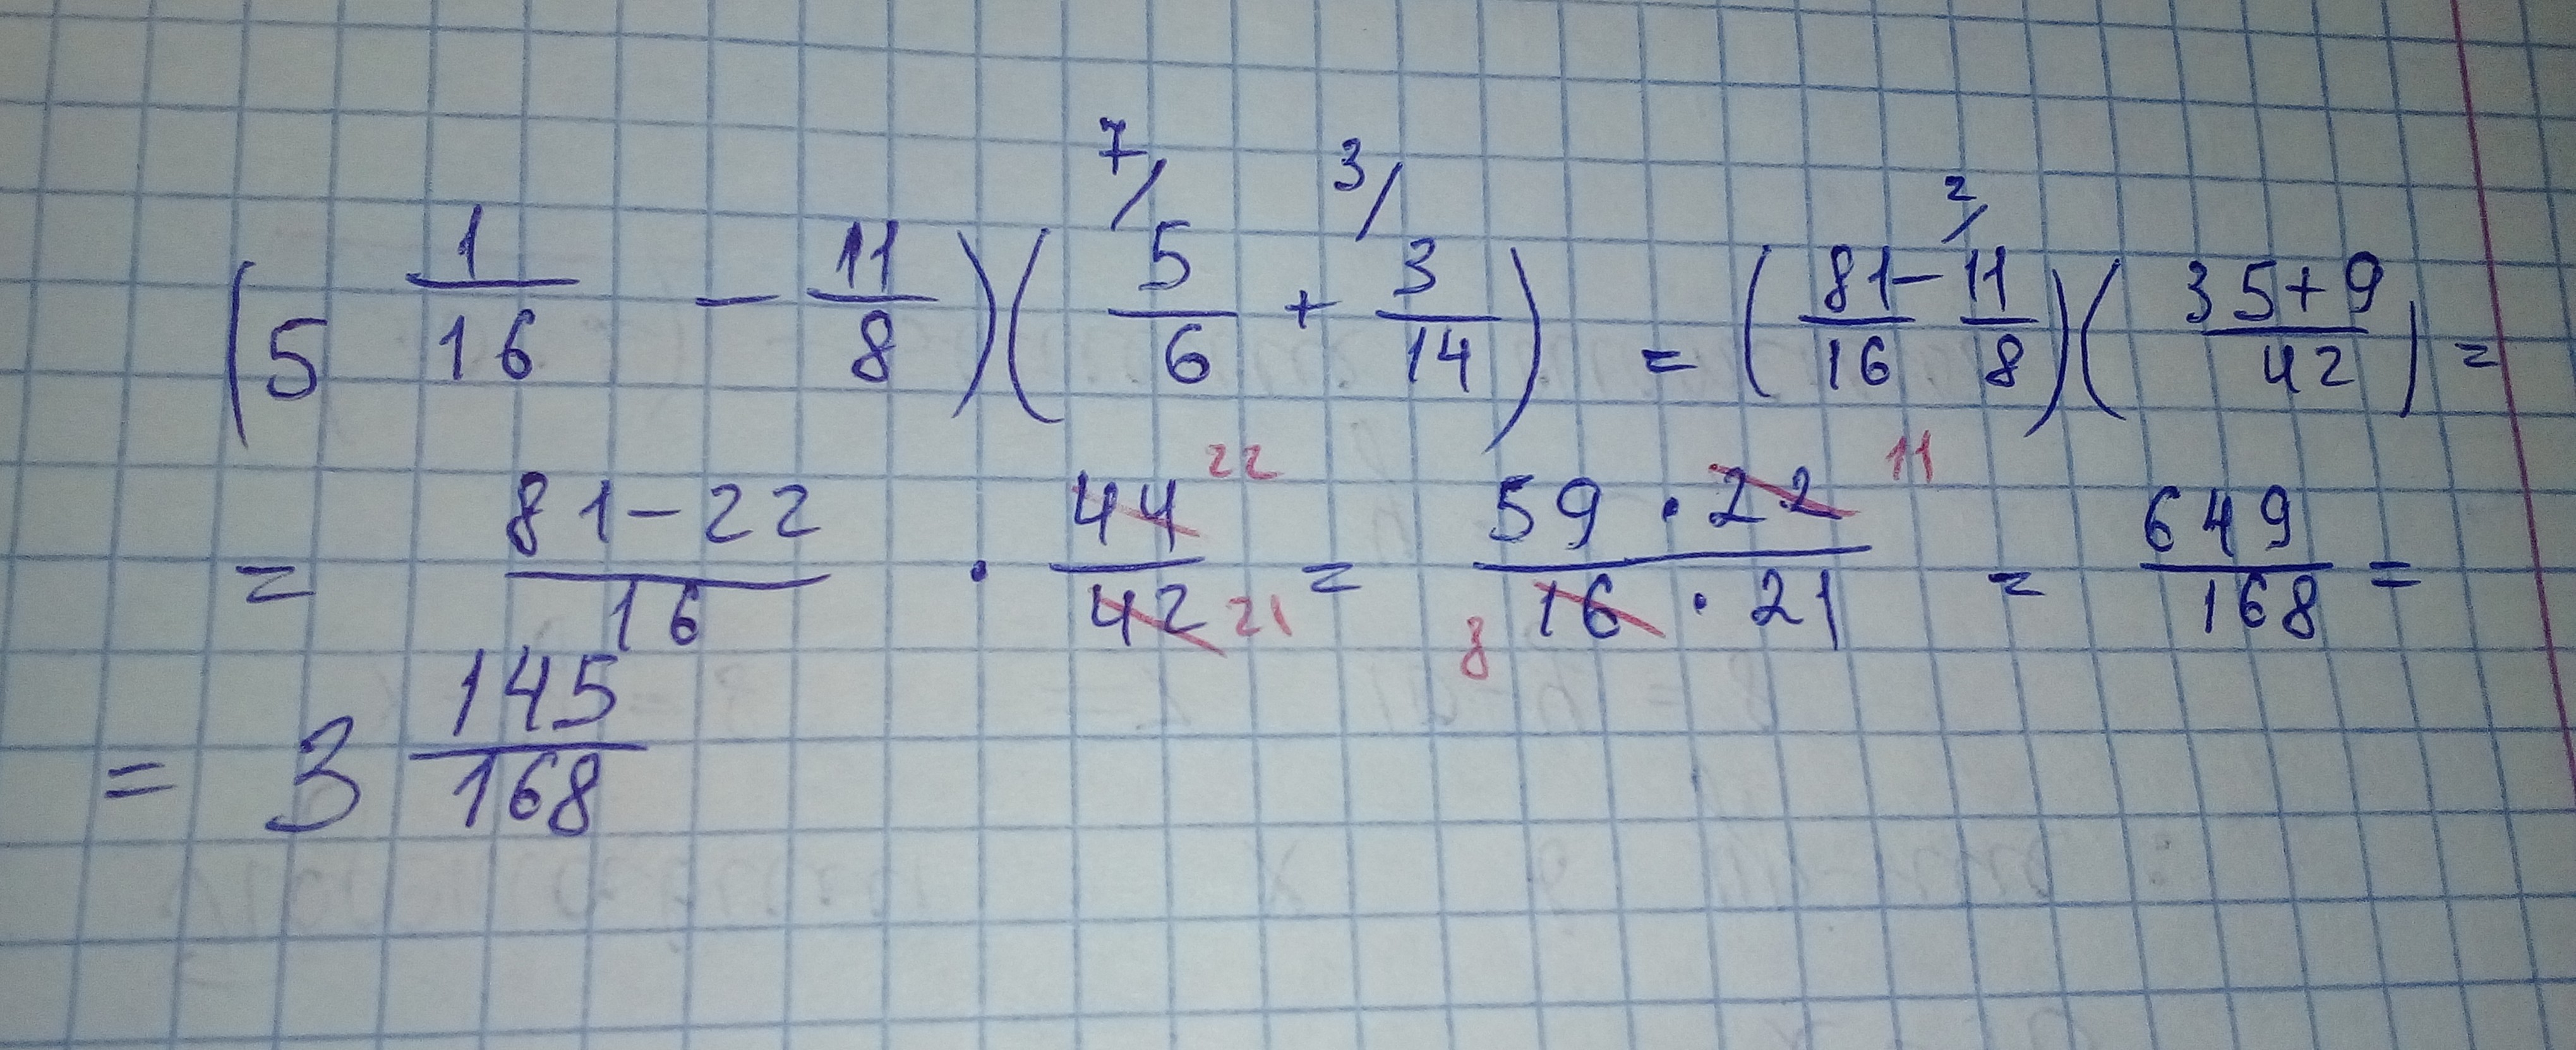 (5 1/16 - 11/8)(7/ 5/6 + 3/ 3/14) = (81/16 - 2/ 11/8)((35+9)/42) =
= (81-22)/16 · 44/42 22 21 = (59 · 22)/(16 · 21) 11 8 = 649/168 =
= 3 145/168